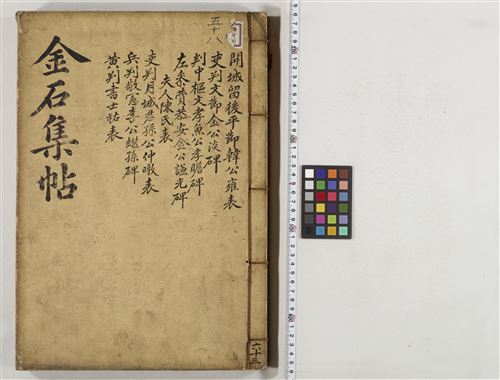 金石集帖
五十八
開城留後平節韓公雍表
吏判文節金公淡碑
判中樞文孝魚公孝瞻碑
左參贊恭安金公謙光碑
夫人陳氏表
吏判月城君孫公仲暾表
兵判敬憲李公繼孫碑
黃判書士祐表
六十三